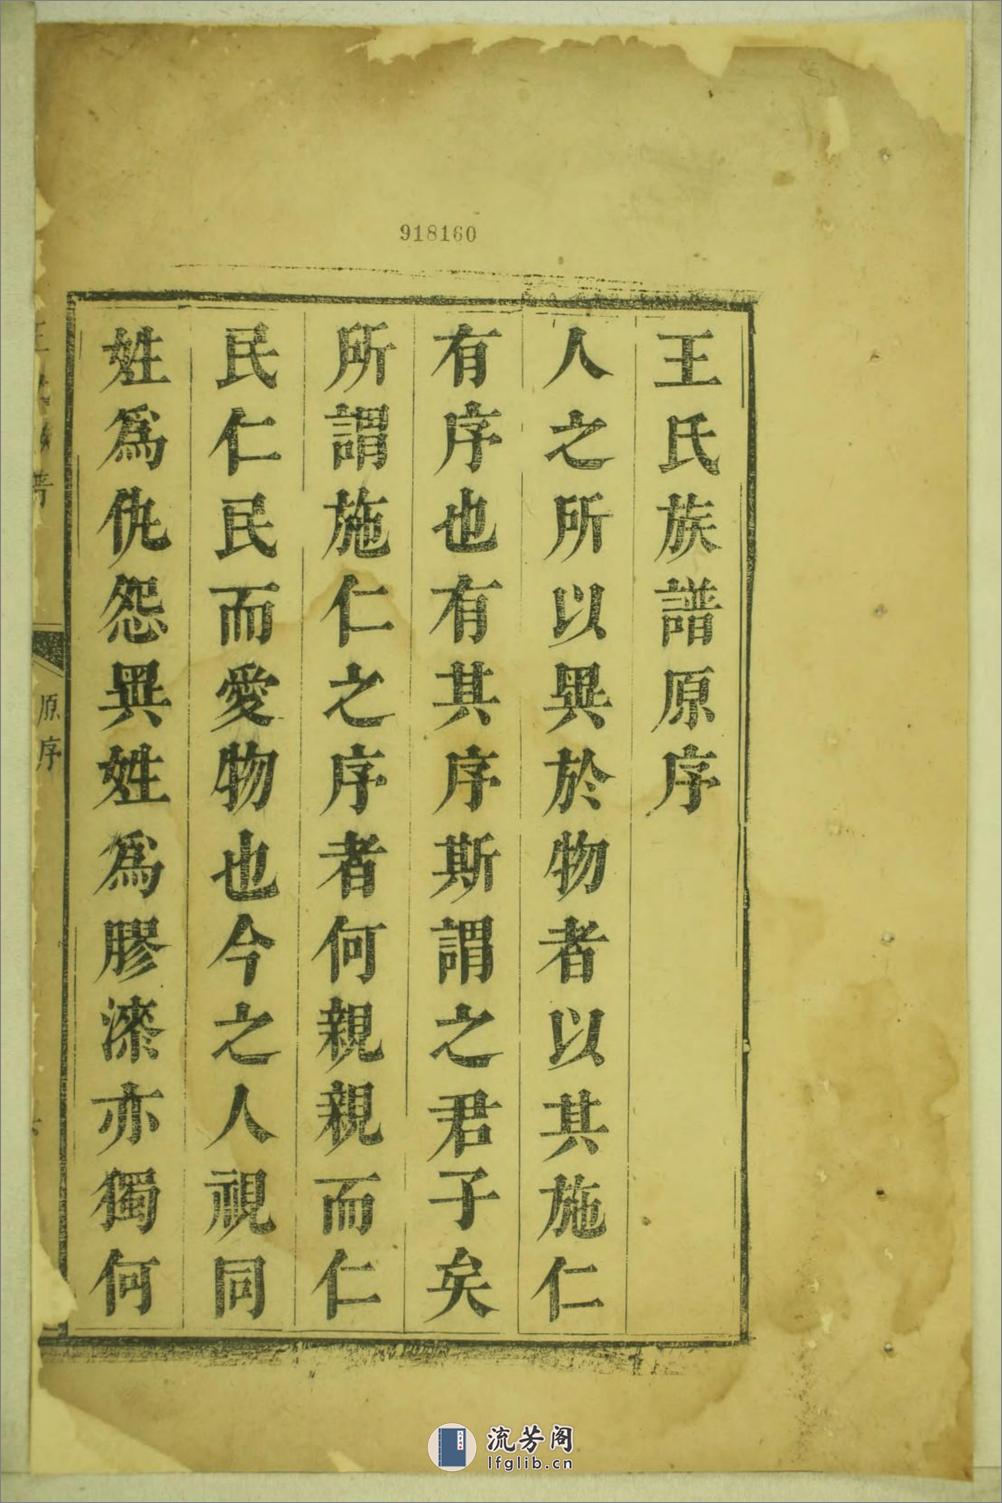 918160
王氏族譜原序
人之所以異於物者以其施仁
有序也有其序斯謂之君子矣
所謂施仁之序者何親親而仁
民仁民而愛物也今之人視同
姓為仇怨異姓為膠漆亦獨何
原序
流芳阁
lfglib.cn